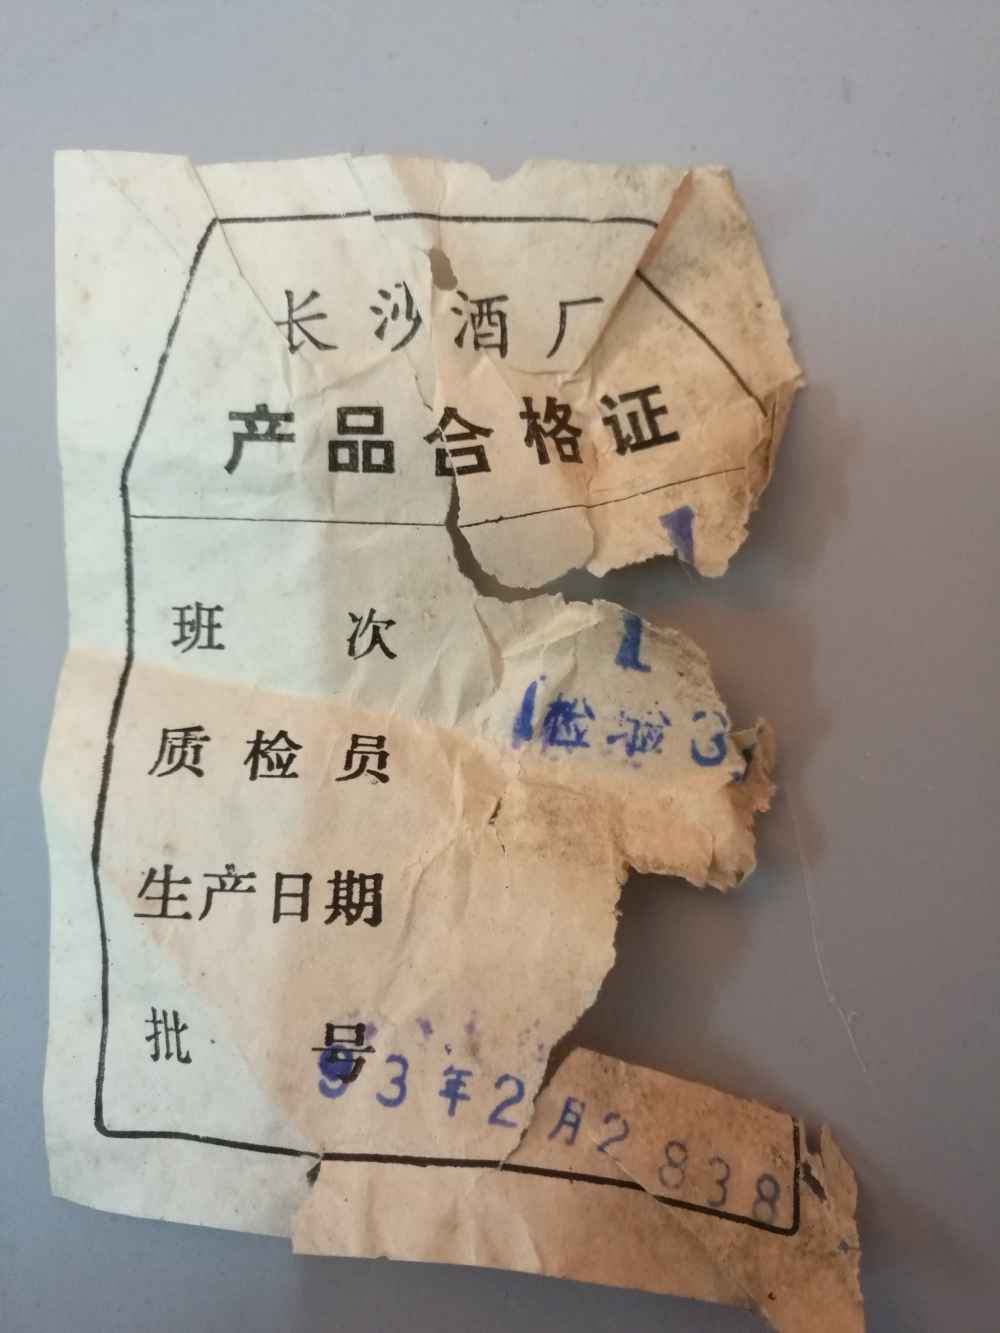 长沙酒厂
产品合格证
1
班次 1
质检员 检验 3
生产日期
批号
93年2月2838